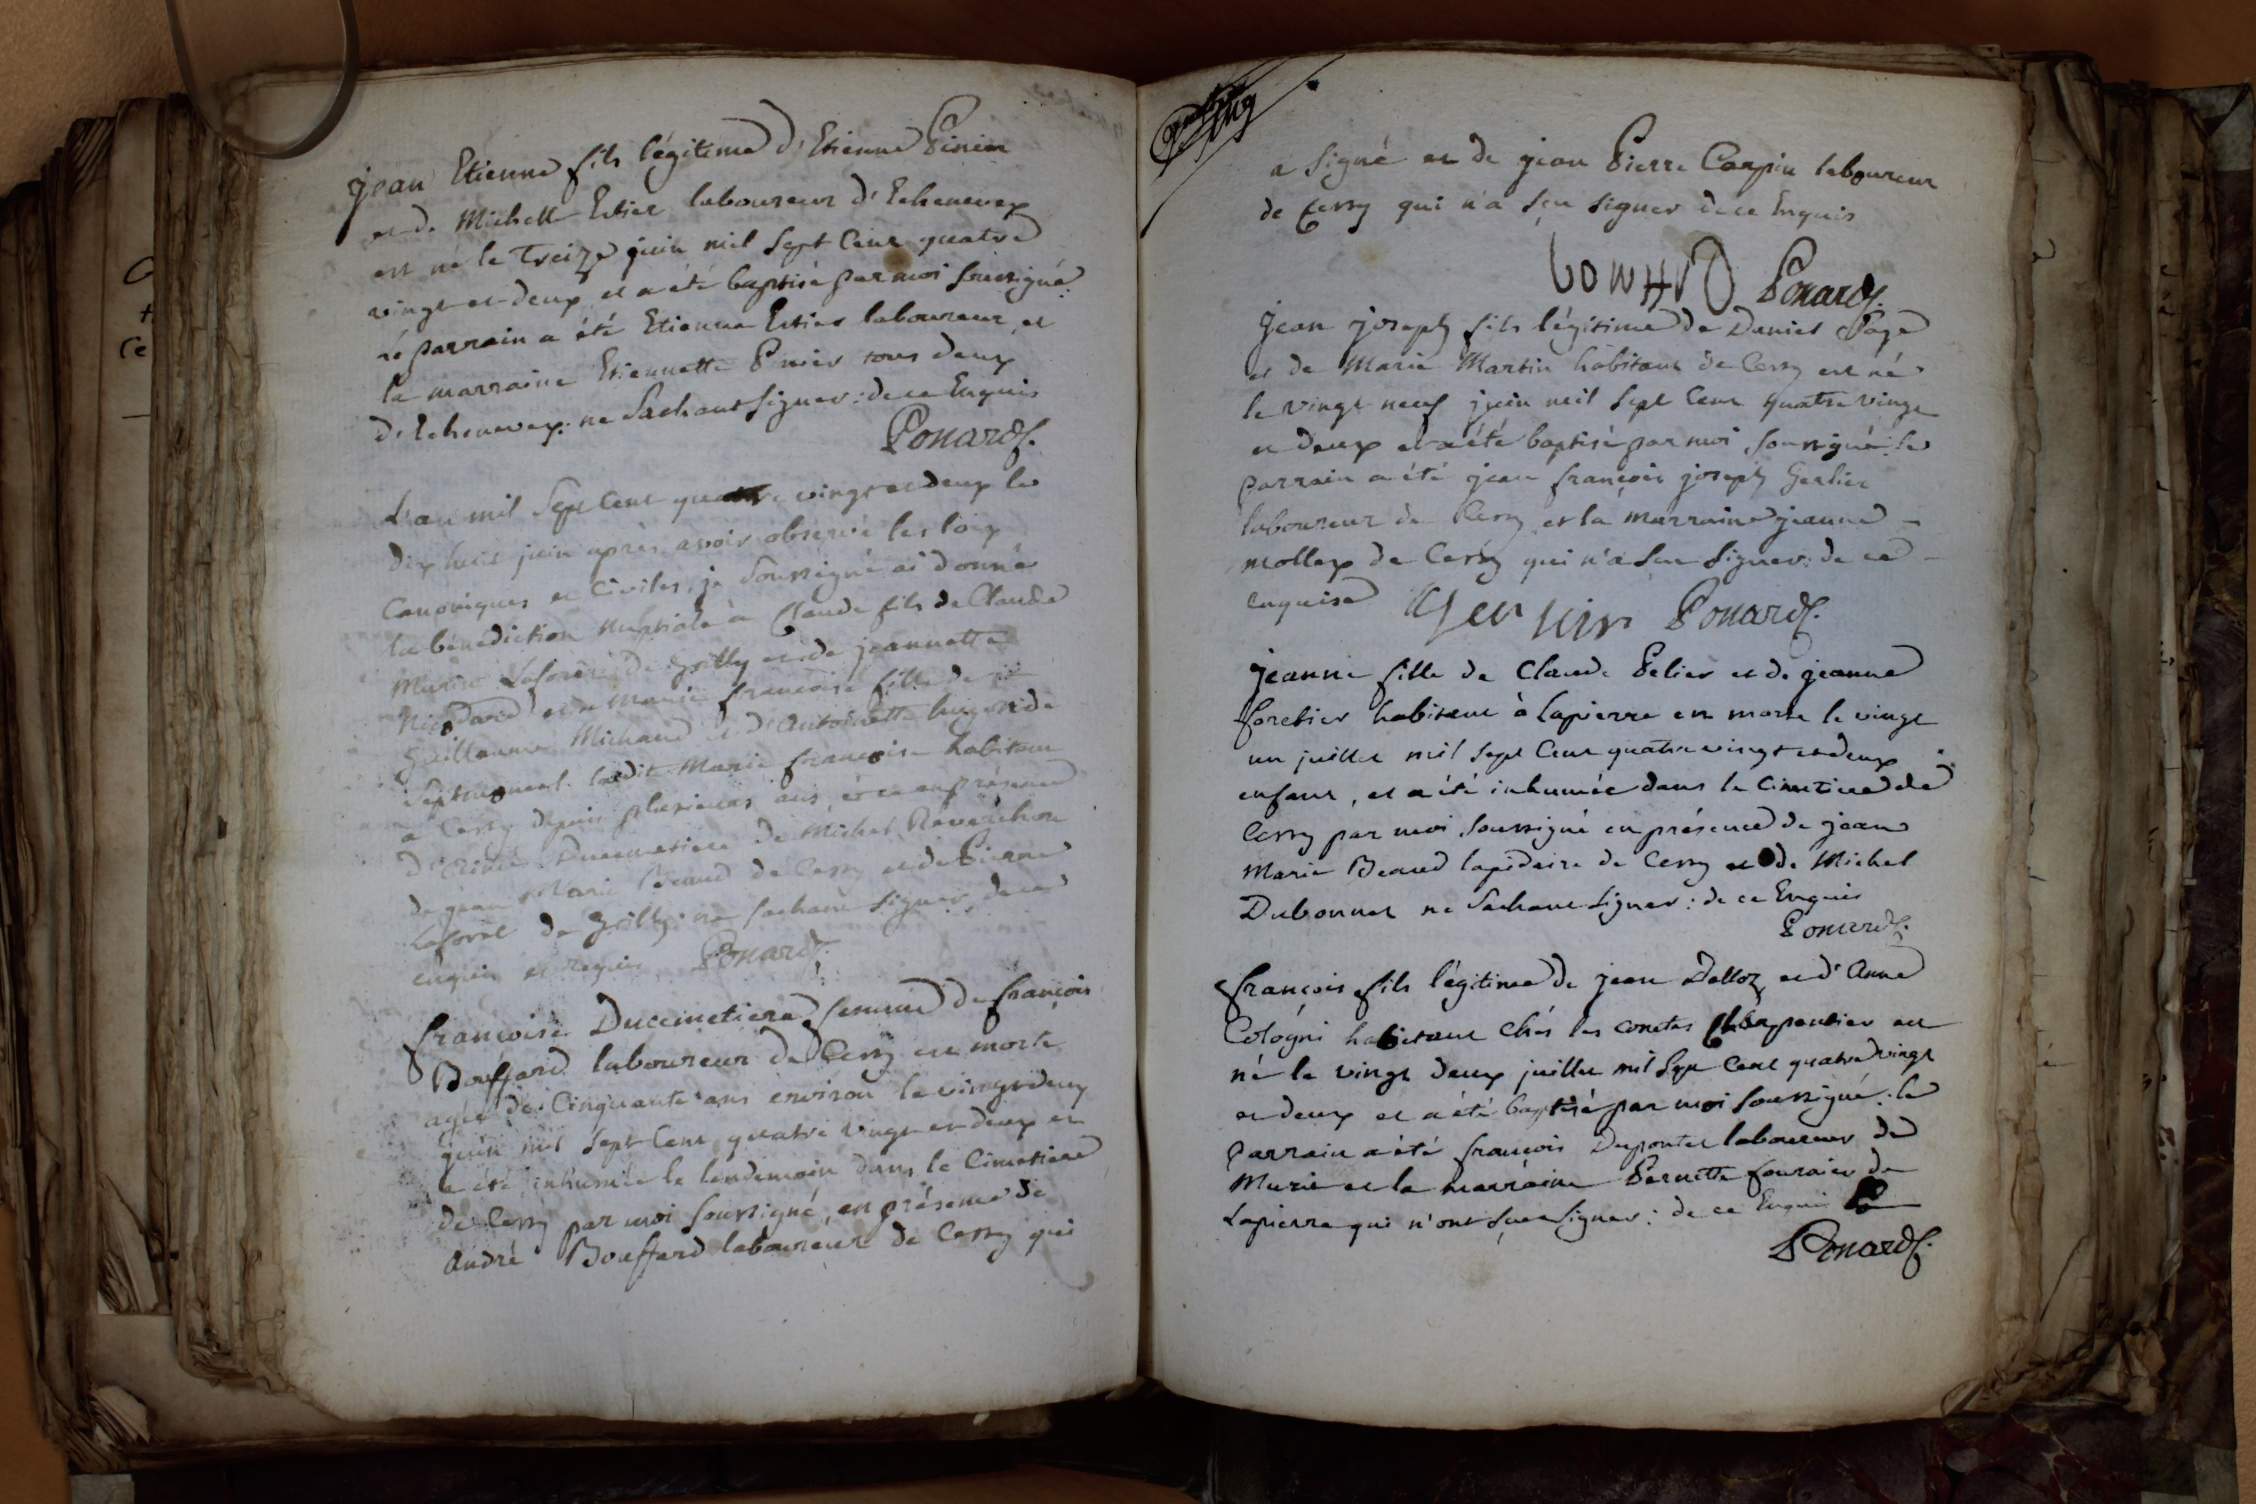 Jean Etienne fils légitime d'Etienne Pinier
et de Michelle Estier laboureur d'Echenevex
est né le Treize juin mil sept cent quatre
vingt et deux et a été baptisé par moi soussigné:
le parrain a été Etienne Estier laboureur, et
la marraine Etiennette Pinier tous deux
d'Echenevex: ne sachant signer: de ce Enquis
Ponard.
L'an mil sept cent quatre vingt et deux le
dix huit juin après avoir observé les loix
Canoniques et Civiles, je soussigné ai donné
la bénédiction nuptiale à Claude fils de Claude
Marie Laforêt de Grilly et de jeannette
et à Marie françoise fille de
Guillaume Michaud et d'Antoinette de
ladite Marie françoise habitant
à Cessy depuis plusieurs ans, et ce en présence
Ducimetière de Michel
de jean Marie Beaud de Cessy et de Pierre
Laforêt de Grilly: ne sachant signer, de ce
enquis et requis. Ponard.
françoise Ducimetiere femme de françois
Bouffard laboureur de Cessy est morte
agée de Cinquante ans environ le vingt deux
juin mil sept Cent quatre vingt et deux et
a été inhumée le lendemain dans le Cimetiere
de Cessy par moi soussigné, en présence de
André Bouffard laboureur de Cessy qui
a signé et de jean Pierre Carpin laboureur
de Cessy qui n'a sçu signer de ce Enquis
Ponard.
Jean joseph fils légitime de Daniel Page
et de Marie Martin habitant de Cessy est né
le vingt neuf juin mil sept Cent quatre vingt
et deux et a été baptisé par moi soussigné: le
parrain a été jean françois joseph Gerlier
laboureur de Cessy et la marraine jeanne
mollex de Cessy qui n'a sçu signer: de ce
enquise Ponard.
Jeanne fille de Claude Pelier et de jeanne
foretier habitant à Lapierre est morte le vingt
un juillet mil sept Cent quatre vingt et deux
enfant, et a été inhumée dans le Cimetiere de
Cessy par moi soussigné en présence de jean
Marie Beaud lapidaire de Cessy et de Michel
Dubonnet ne sachant signer: de ce Enquis
Ponard.
françois fils légitime de jean Delloz et d'Anne
Cologni habitant chés les comtes Charpentier est
né le vingt deux juillet mil sept Cent quatre vingt
et deux et a été baptisé par moi soussigné: le
parrain a été françois Dupontet laboureur de
Murie et la marraine Pernette fournier de
Lapierre qui n'ont sçu signer: de ce Enquis
Ponard.